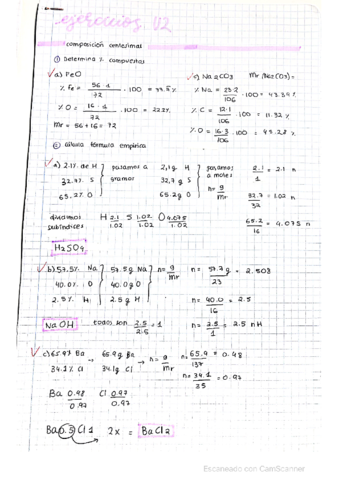 ejercicios U2
composición centesimal
① Determina % compuestos
✓ a) FeO
% Fe = 56·1/72 · 100 = 77.8%
% O = 16·1/72 · 100 = 22.2%
Mr = 56 + 16 = 72
✓ c) Na2CO3 Mr Na2CO3 =
% Na = 23·2/106 · 100 = 43.39%
% C = 12·1/106 · 100 = 11.32%
% O = 16·3/106 · 100 = 45.28%
② Calcula fórmula empírica
✓ a) 2.1% de H
32.7% S
65.2% O
pasamos a gramos
2,1 g H
32,7 g S
65.2 g O
pasamos a moles
n = g/mr
2.1/1 = 2.1 n
32.7/32 = 1.02 n
65.2/16 = 4.075 n
dividimos subíndices H 2.1/1.02 S 1.02/1.02 O 4.075/1.02
H2SO4
✓ b) 57.5% Na
40.0% O
2.5% H
57.5 g Na
40.0 g O
2.5 g H
n = g/mr
n = 57.5/23 = 2.503
n = 40.0/16 = 2.5
n = 2.5/1 = 2.5 n H
NaOH todos son 2.5/2.5 = 1
✓ c) 65.9% Ba → 65.9 g Ba
34.1% Cl → 34.1 g Cl
n = g/mr
n = 65.9/137 = 0.48
n = 34.1/35 = 0.97
Ba 0.48/0.97 Cl 0.97/0.97
Ba0.5Cl1 2x = BaCl2
Escaneado con CamScanner